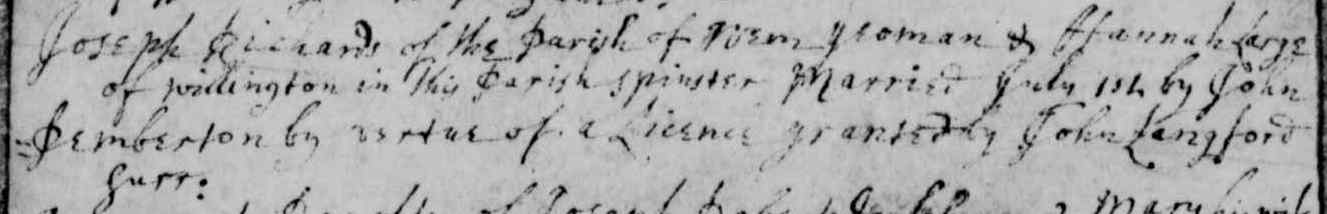 Joseph Richards of the Parish of Wem yeoman & Hannah Large
of Willington in this Parish spinster Married July 1st by John
Pemberton by vertue of a Licence granted by John Langford
Surr:
of Joseph Mary his wife